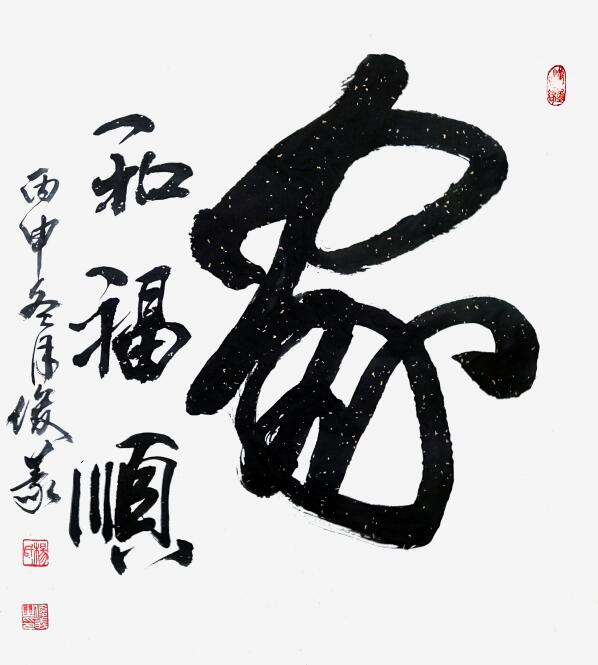 家
和福順
丙申冬月俊義
楊